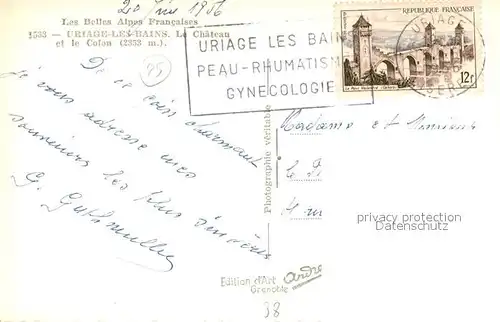 20 Juin 1956
Les Belles Alpes Françaises
1533 — URIAGE-LES-BAINS. Le Château
et le Colon (2353 m.).
95
URIAGE LES BAINS
PEAU-RHUMATISM
GYNECOLOGIE
URIAGE
ISERE
REPUBLIQUE FRANÇAISE
12F
Le Pont Valentré - Cahors
De ce coin charmant
je vous adresse mes
souvenirs les plus sincères
G.
Photographie véritable
Madame et Monsieur
privacy protection
Datenschutz
Edition d'Art
Grenoble
André
98